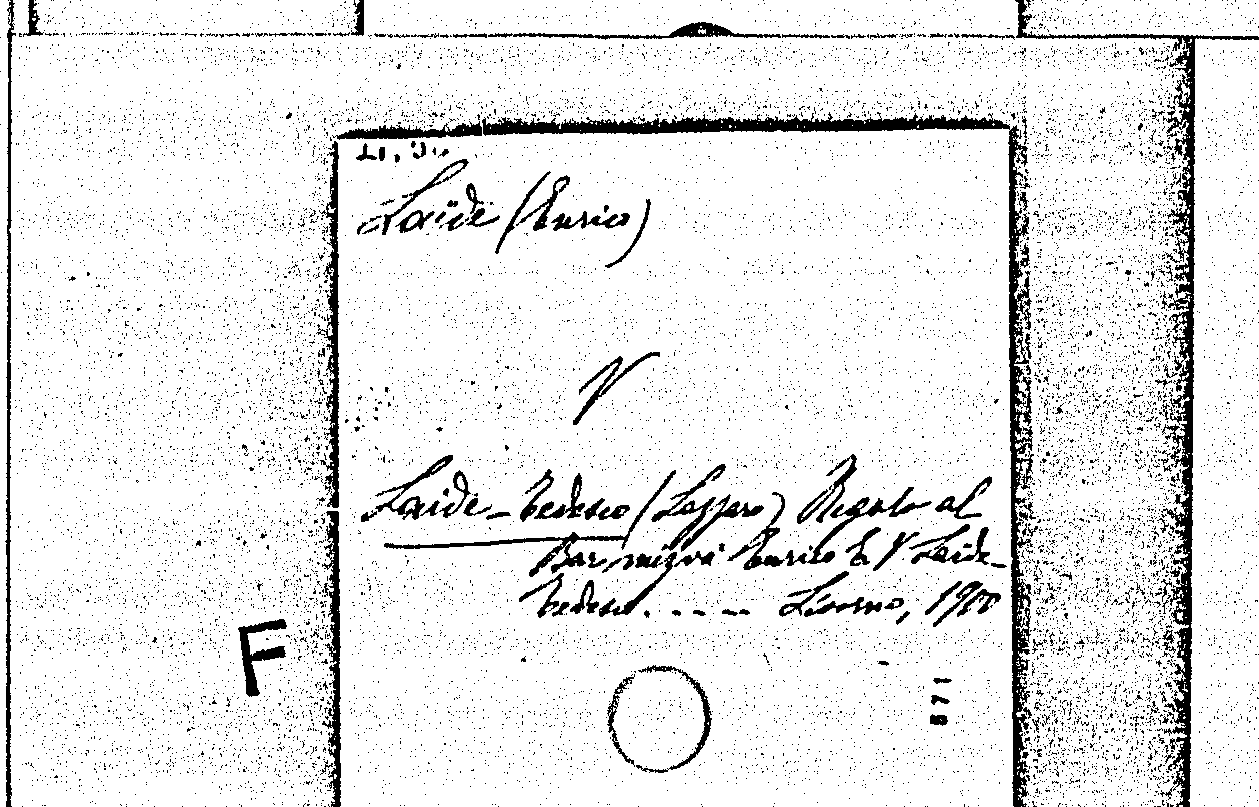 Laide (Enrico)
V
Laide-Tedesco (Lazzaro) Regalo al
Bar mizvà Enrico E. V Laide-
Tedesco. - - - - Livorno, 1900
F
571